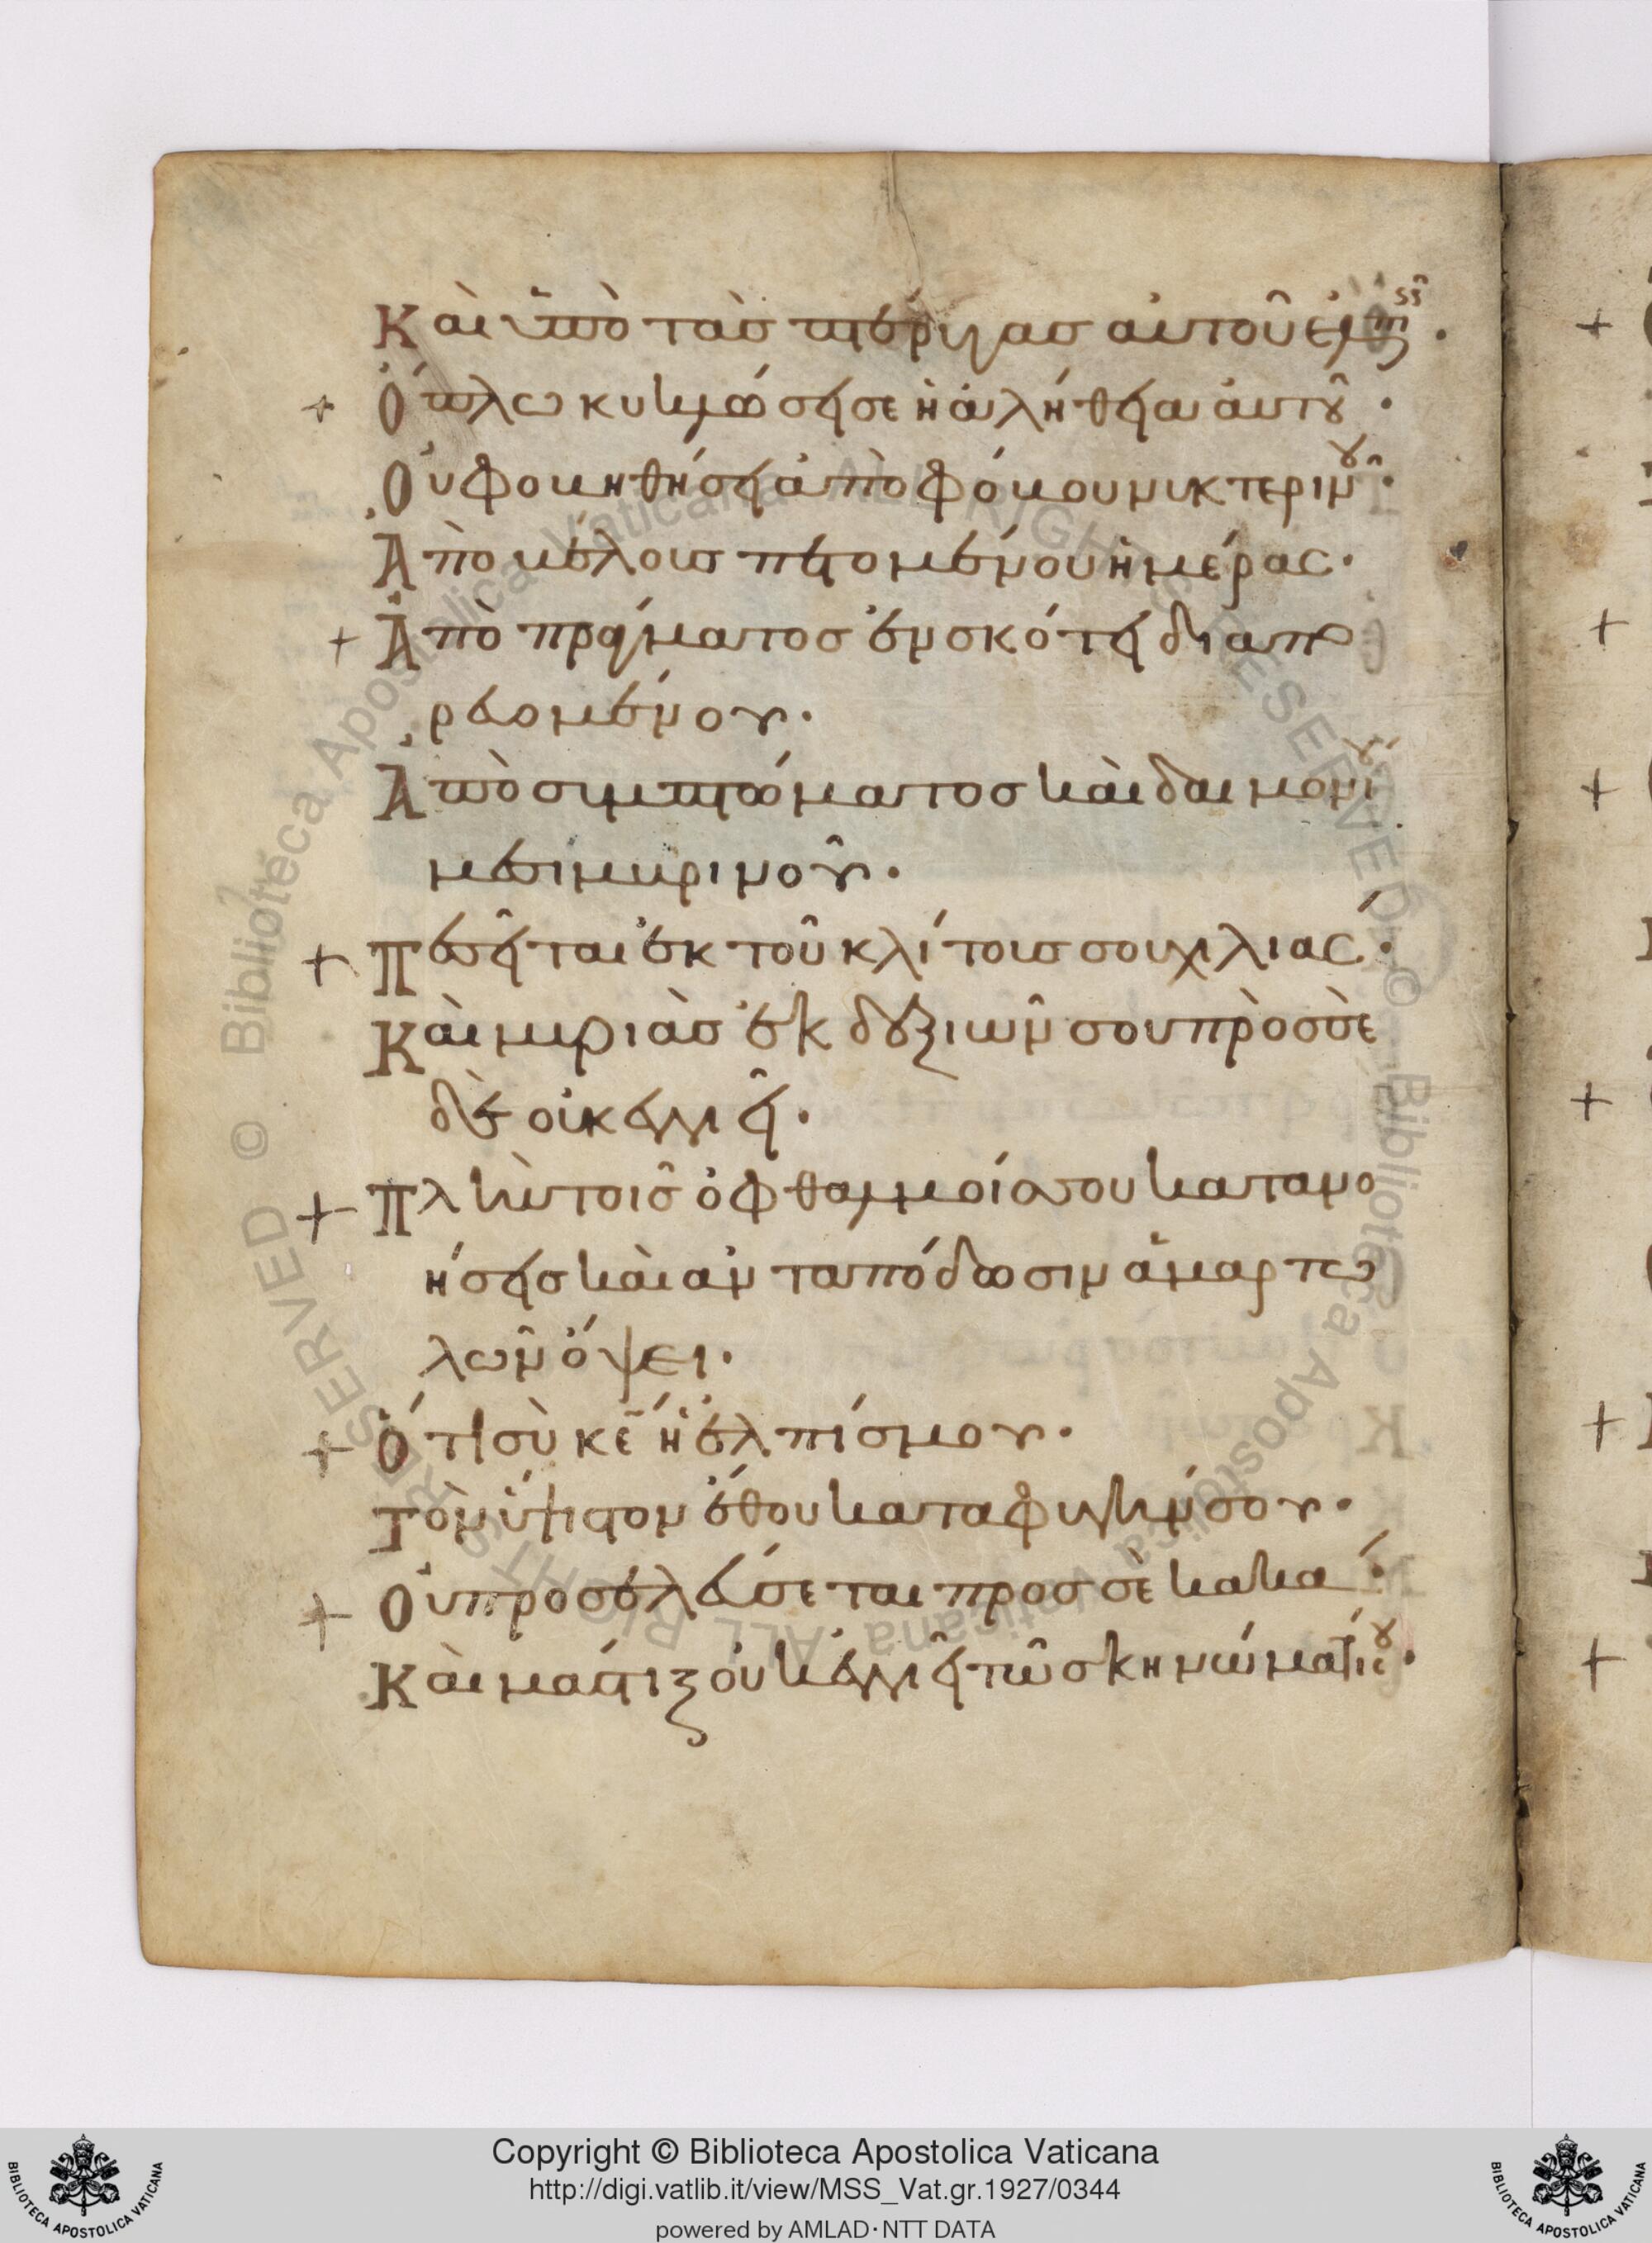 Καὶ ὑπὸ τὰσ πτέρυγασ αὐτοῦ ἐλπιεῖσ·
+ Ὅπλω κυκλώσήσε ἡ ἀλήθηα ἀυτοῦ·
Ὀυ φοβηθήση ἀπὸ φόβου νυκτερινοῦ·
Ἀπὸ βέλουσ πετομένου ἡμέρας·
+ Ἀπὸ πράγματοσ ἐν σκότει διαπο
ρευομένου·
Ἀπὸ συμπτώματοσ καὶ δαιμονίου
μεσιμβρινοῦ·
+ Πεσεῖται ἐκ τοῦ κλίτουσ σου χιλιάς·
Καὶ μυριὰσ ἐκ δεξιῶν σου πρὸσ σὲ
δὲ οὐκ ἐγγιεῖ·
+ Πλὴν τοῖσ ὀφθαλμοίσ σου κατανο
ήσεισ καὶ ἀνταπόδωσιν ἁμαρτω
λῶν ὄψει·
+ Ὅτι σὺ κε̄ ἡ ἐλπίσ μου·
Τὸν ὕψιστον ἔθου καταφυγήν σου·
+ Ὀυ προσελεύσεται προσ σὲ κακά·
Καὶ μάστιξ ὀυκ ἐγγιεῖ τῶ σκηνώματί σου·
Copyright © Biblioteca Apostolica Vaticana
http://digi.vatlib.it/view/MSS_Vat.gr.1927/0344
powered by AMLAD·NTT DATA